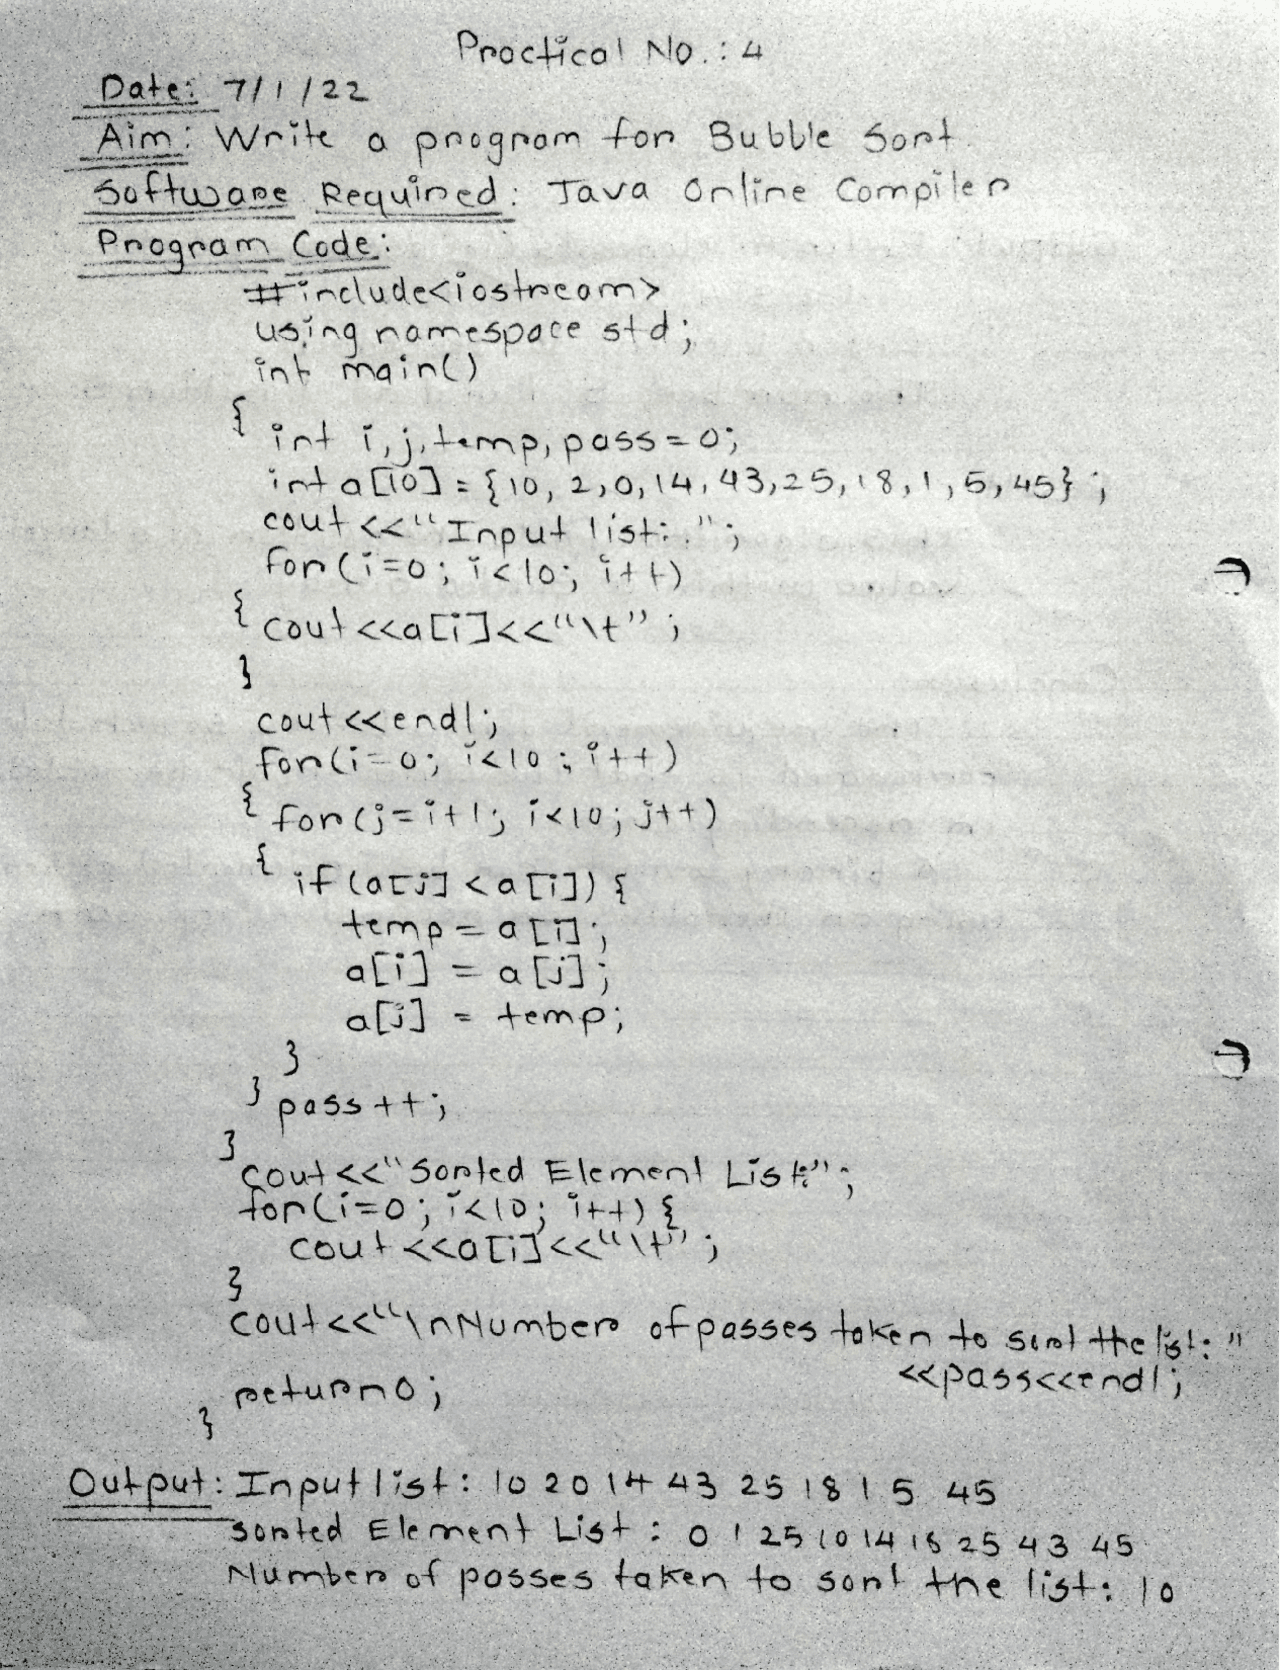 Practical No.: 4
Date: 7/1/22
Aim: Write a program for Bubble Sort.
Software Required: Java Online Compiler
Program Code:
#include<iostream>
using namespace std;
int main()
{
int i,j,temp,pass=0;
int a[10]={10, 2,0,14,43,25,18,1,5,45};
cout<<"Input list: ";
for(i=0; i<10; i++)
{
cout<<a[i]<<"\t";
}
cout<<endl;
for(i=0; i<10; i++)
{
for(j=i+1; i<10; j++)
{
if(a[j]<a[i]){
temp=a[i];
a[i] = a[j];
a[j] = temp;
}
}
pass++;
}
cout<<"Sorted Element List:";
for(i=0; i<10; i++){
cout<<a[i]<<"\t";
}
cout<<"\nNumber of passes taken to sort the list: "
<<pass<<endl;
return0;
}
Output: Input list: 10 2 0 14 43 25 18 1 5 45
Sorted Element List : 0 1 2 5 10 14 18 25 43 45
Number of passes taken to sort the list: 10